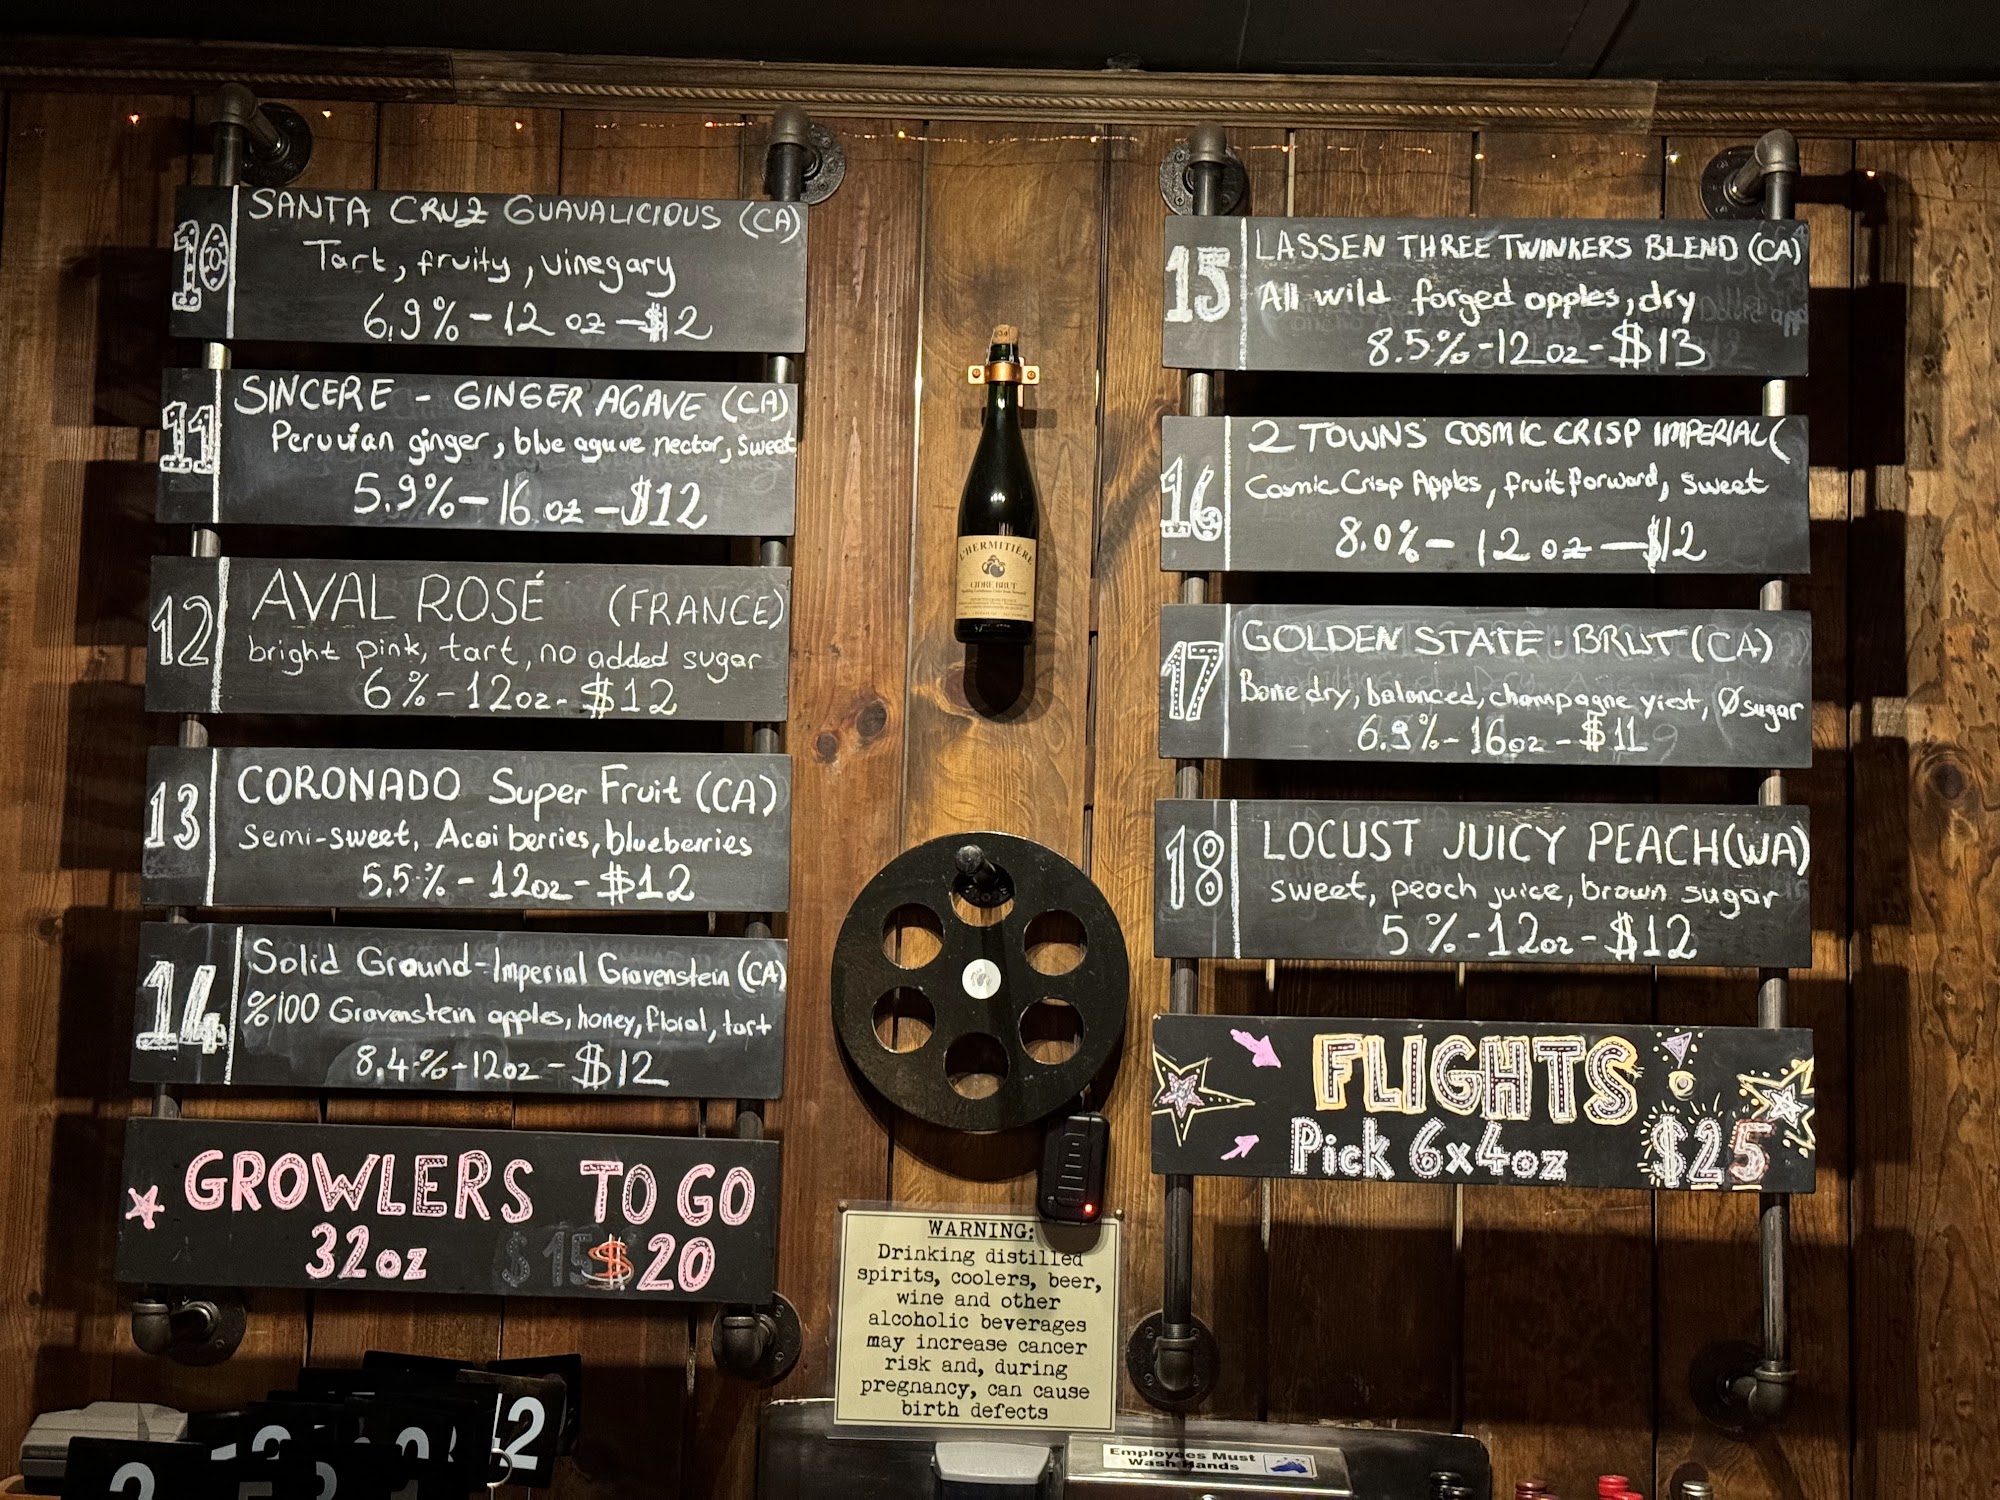 10
SANTA CRUZ GUAVALICIOUS (CA)
Tart, fruity, vinegary
6.9% - 12 oz - $12
11
SINCERE - GINGER AGAVE (CA)
Peruvian ginger, blue aguve nectar, sweet
5.9% - 16 oz - $12
12
AVAL ROSÉ (FRANCE)
bright pink, tart, no added sugar
6% - 12oz - $12
13
CORONADO Super Fruit (CA)
Semi-sweet, Acai berries, blueberries
5.5% - 12oz - $12
14
Solid Ground - Imperial Gravenstein (CA)
%100 Gravenstein apples, honey, floral, tart
8.4% - 12oz - $12
GROWLERS TO GO
32oz $15 $20
L'HERMITIÈRE
CIDRE BRUT
WARNING:
Drinking distilled
spirits, coolers, beer,
wine and other
alcoholic beverages
may increase cancer
risk and, during
pregnancy, can cause
birth defects
Employees Must
Wash Hands
15
LASSEN THREE TWINKERS BLEND (CA)
All wild forged apples, dry
8.5% - 12oz - $13
16
2 TOWNS COSMIC CRISP IMPERIAL (
Cosmic Crisp Apples, fruit forward, sweet
8.0% - 12 oz - $12
17
GOLDEN STATE - BRUT (CA)
Bone dry, balanced, champagne yiest, Ø sugar
6.9% - 16oz - $11
18
LOCUST JUICY PEACH (WA)
sweet, peach juice, brown sugar
5% - 12oz - $12
FLIGHTS
Pick 6x4oz $25
2